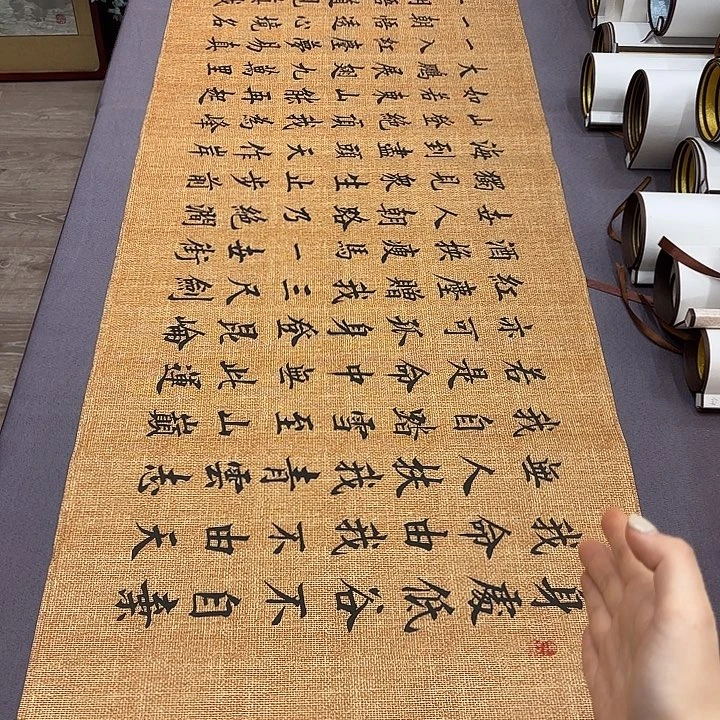 身處低谷不自棄
我命由我不由天
無人扶我青雲志
我自踏雪至山巔
若是命中無此運
亦可孤身登昆崙
紅塵贈我三尺劍
酒換瘦馬一世街
世人朝路乃絕澗
獨見眾生止步前
海到盡頭天作岸
山登絕頂我為峰
如若東山能再起
大鵬展翅九萬里
一入紅塵夢易真
一朝悟透心境名